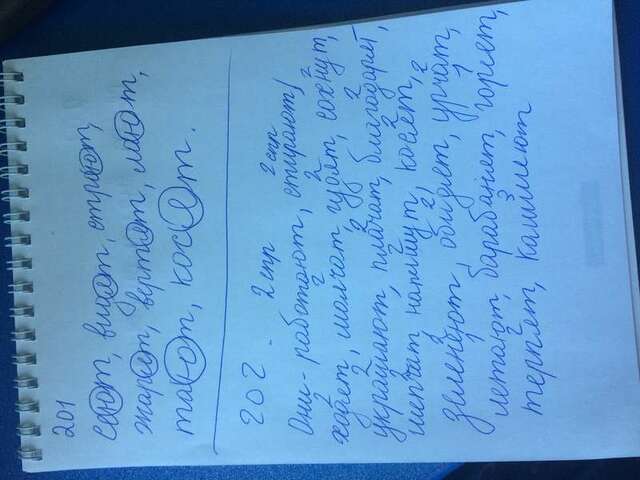 201
сеют, видят, строют,
жарят, вертят, лают,
тают, косят.
202. 2 спр 2 спр
Они - работают, стирают,
2 2 2 2
ходят, молчат, гудят, сохнут,
2 2 2
украшают, плачат, благодарят,
2 2 2
шепчат, напишут, косят,
2 2 2
зеленеют, обидят, урчат,
1 1
летают, барабанят, горят,
2 3
терпят,